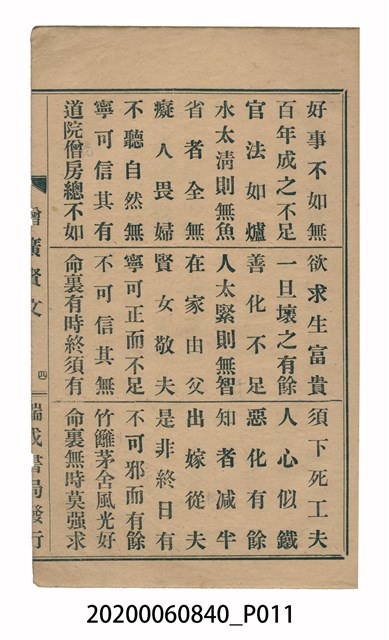 好事不如無　欲求生富貴　須下死工夫
百年成之不足　一旦壞之有餘　人心似鐵
官法如爐　善化不足　惡化有餘
水太清則無魚　人太緊則無智　知者减半
省者全無　在家由父　出嫁從夫
癡人畏婦　賢女敬夫　是非終日有
不聽自然無　寧可正而不足　不可邪而有餘
寧可信其有　不可信其無　竹籬茅舍風光好
道院僧房總不如　命裏有時終須有　命裏無時莫强求
增廣賢文　四　瑞成書局發行
20200060840_P011